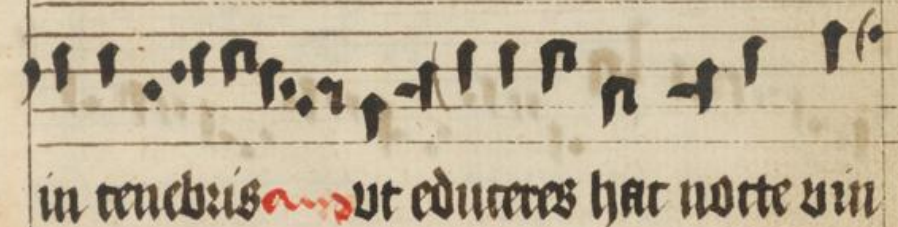 in tenebris ut educeres hac nocte vin